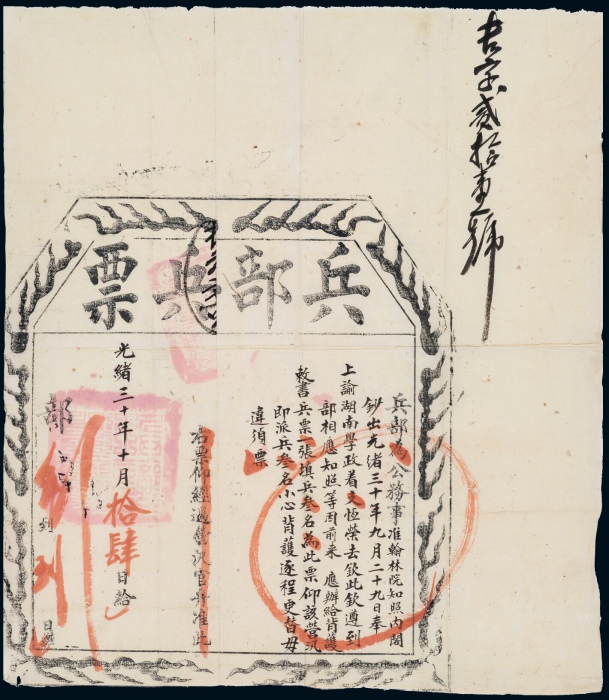 吉字貳拾壹號
兵部兵票
兵部為公務事准翰林院知照內閣
鈔出光緒三十年九月二十九日奉
上諭湖南學政着支恆榮去欽此欽遵到
部相應知照等因前來 應辦給背護
敕書兵票一張填兵叁名為此票仰該營汛
即派兵叁名小心背護逐程更替毋
違須票
右票仰經過營汛官弁准此
光緒三十年十月拾肆日給
部